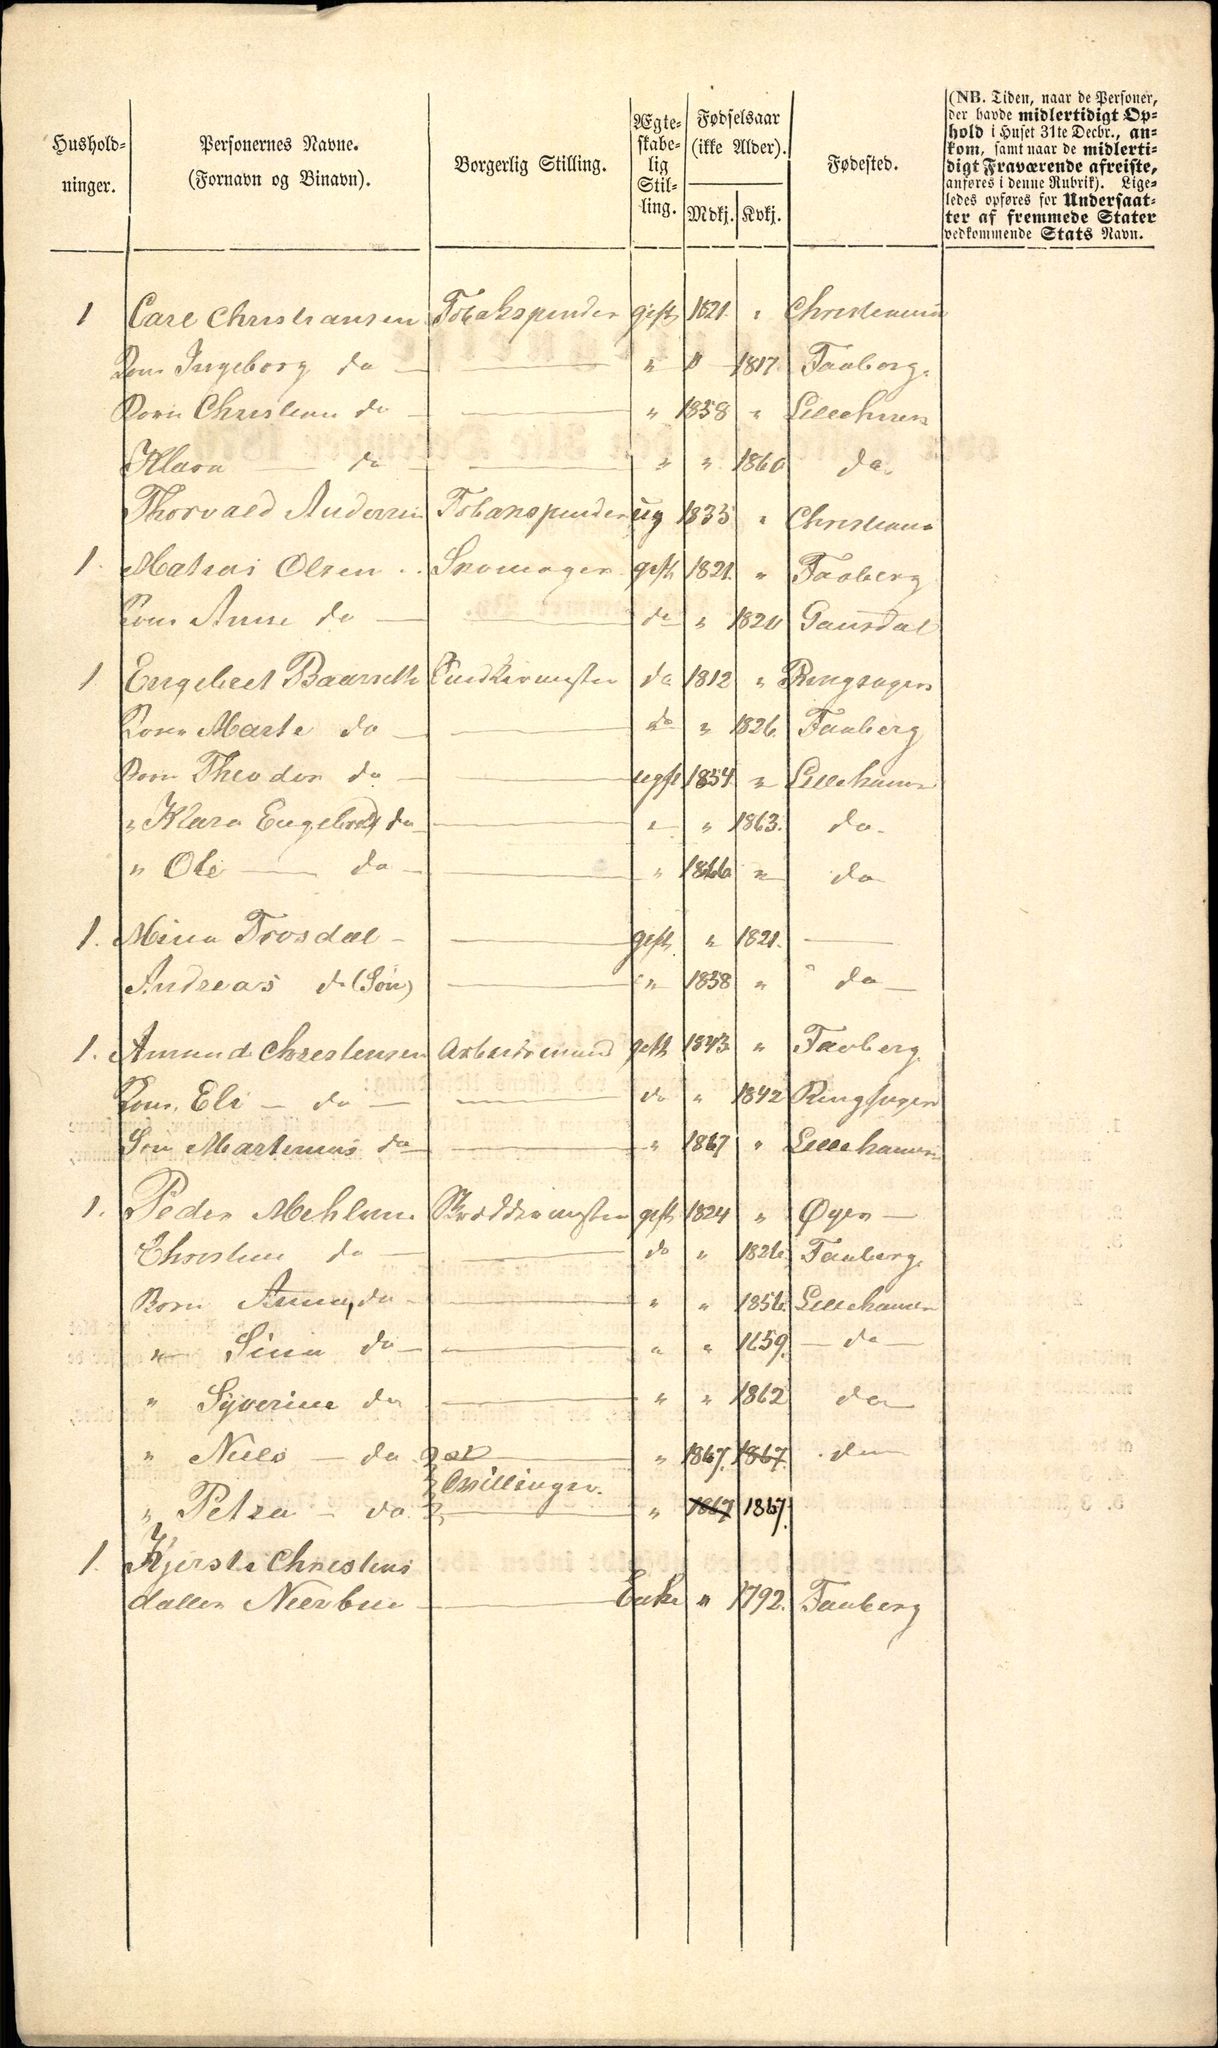 Hushold-
ninger.
Personernes Navne.
(Fornavn og Binavn).
Borgerlig Stilling.
Ægte-
skabe-
lig
Stil-
ling.
Fødselsaar
(ikke Alder).
Mdkj. Kvkj.
Fødested.
(NB. Tiden, naar de Personer,
der havde midlertidigt Op-
hold i Huset 31te Decbr., an-
kom, samt naar de midlerti-
digt Fraværende afreiste,
anføres i denne Rubrik). Lige-
ledes opføres for Undersaat-
ter af fremmede Stater
vedkommende Stats Navn.
1 Carl Christiansen Tobakspinder gift 1821 " Christiania
Kone Ingeborg do — " " 1817 Faaberg.
Børn Christian do — " 1858 " Lillehamer
Klara — do — " " 1860 do.
Thorvald Andersen Tobakspinder ug 1835 " Christiania
1. Mathias Olsen Skomager gift 1821. " Faaberg
Kone Anne do — do " 1820 Gausdal
1 Engebret Baarseth do 1812 " Ringsager
Kone Marte do — do " 1826 Faaberg
Børn Theodor do — ugft 1854 " Lillehamer
" Klara Engebret do — " " 1863. do.
" Ole — do — " 1866 " do
1. Mina Trosdal — gift. " 1821. —
Andreas do (Søn) — " 1858 " do —
1. Amund Christensen Arbeidsmand gift 1843 " Faaberg.
Kone. Eli — do — do " 1842 Ringsager
Søn Martinus do — " 1867 " Lillehamer
1. Peder Mehlum Skræddermester gift 1824 " Øyer —
Christine do — do " 1826 Faaberg.
Børn Anna, do — " " 1856. Lillehamer
" Sina do — " " 1859. — do —
" Syverine do — " " 1862 do
" Niels — do — " 1867. 1867. do
Tvillinger.
" Petra — do — " 1867 1867.
1. Kjersti Christens
datter Neerbue — Enke " 1792. Faaberg